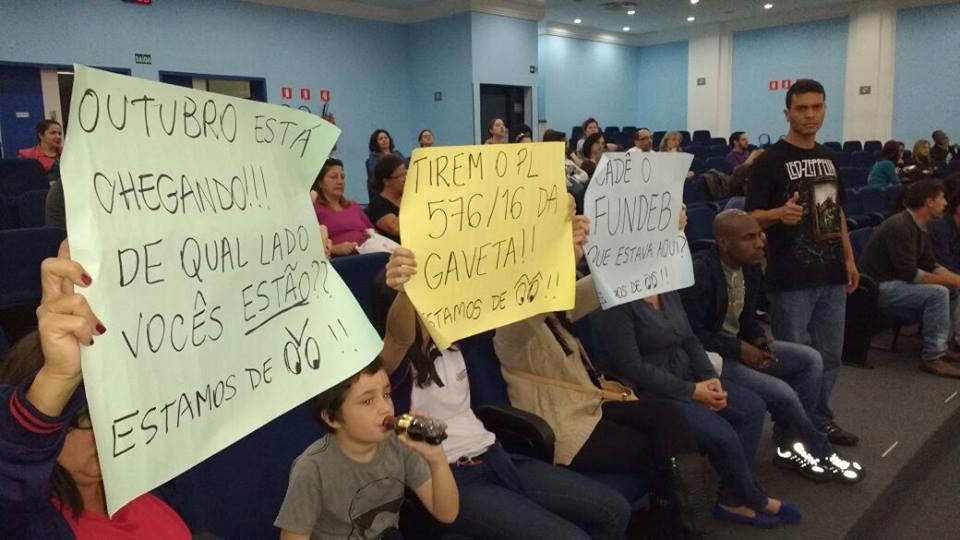 OUTUBRO ESTÁ
CHEGANDO!!!
DE QUAL LADO
VOCÊS ESTÃO??
ESTAMOS DE !!
TIREM O PL
576/16 DA
GAVETA!!
ESTAMOS DE !!
CADÊ O
FUNDEB
QUE ESTAVA AQUI?
DE !!
LED-ZEPPELIN
SAÍDA